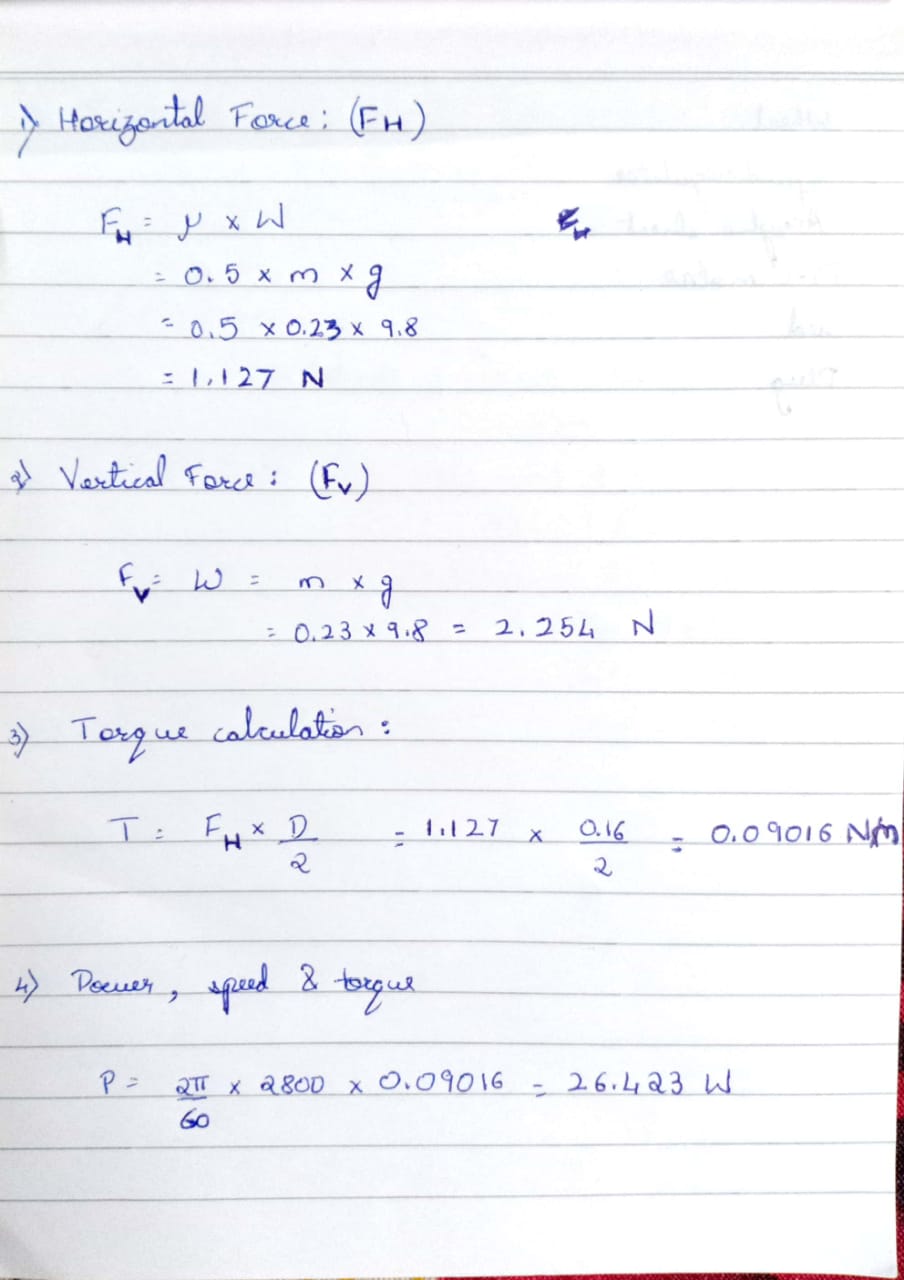 1) Horizontal Force: (FH)
FH = μ x W
= 0.5 x m x g
= 0.5 x 0.23 x 9.8
= 1.127 N
2) Vertical Force: (Fv)
Fv = W = m x g
= 0.23 x 9.8 = 2.254 N
3) Torque calculation:
T = FH x D/2 = 1.127 x 0.16/2 = 0.09016 Nm
4) Power, speed & torque
P = 2π/60 x 2800 x 0.09016 = 26.423 W